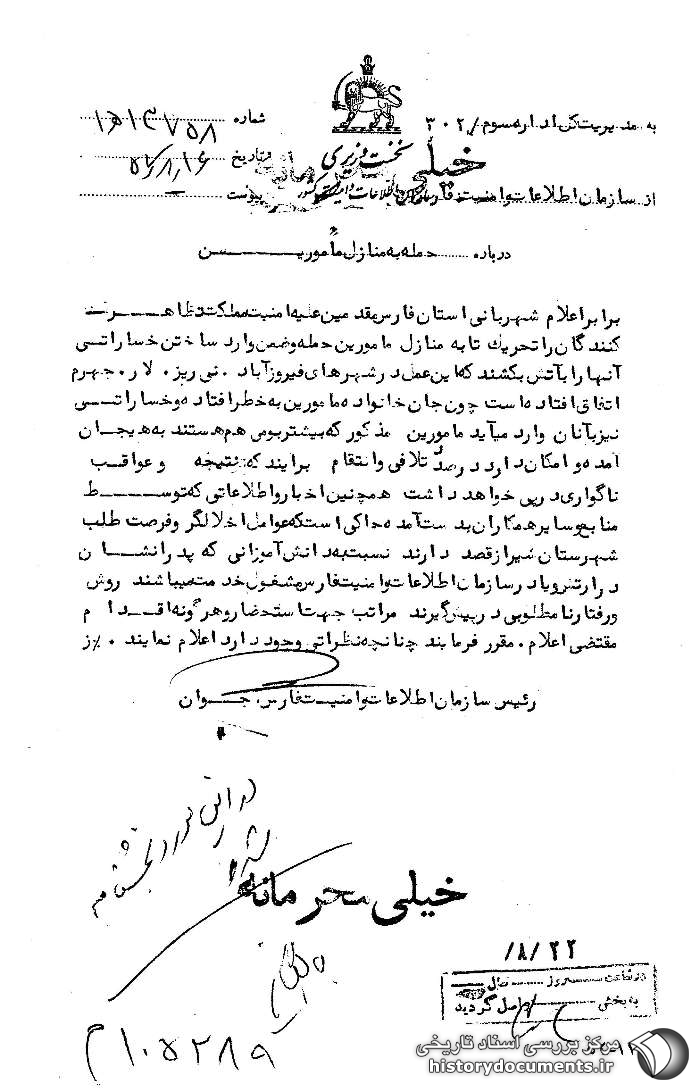 به مدیریت کل اداره سوم / ۳۰۲
شماره ۱۵۱۳۷۵۸
نخست وزیری
خیلی
تاریخ
سازمان اطلاعات و امنیت کشور
از سازمان اطلاعات و امنیت فارس
پیوست
درباره حمله به منازل مأمورین
برابر اعلام شهربانی استان فارس مقدمین علیه امنیت مملکت تظاهرات
کنندگان را تحریک تا به منازل مامورین حمله و ضمن وارد ساختن خساراتی
آنها را بآتش بکشند که این عمل در شهرهای فیروزآباد ۰ نی ریز ۰ لار ۰ جهرم
اتفاق افتاده است چون جان خانواده مامورین به خطر افتاده و خساراتی
نیز بآنان وارد میآید مامورین مذکور که بیشتر بومی هم هستند به هیجان
آمده و امکان دارد درصدد تلافی وانتقام برآیند که نتیجه و عواقب
ناگواری در پی خواهد داشت همچنین اخبار و اطلاعاتی که توسط
منابع و سایر همکاران بدست آمده حاکی است که عوامل اخلالگر و فرصت طلب
شهرستان شیراز قصد دارند نسبت به دانش آموزانی که پدرانشان
در ارتش و یا در سازمان اطلاعات و امنیت فارس مشغول خدمت میباشند روش
و رفتار نامطلوبی در پیش گیرند مراتب جهت استحضار و هرگونه اقدام
مقتضی اعلام ۰ مقرر فرمایند چنانچه نظراتی وجود دارد اعلام نمایند ۰ /ز
رئیس سازمان اطلاعات و امنیت فارس. جوان
خیلی محرمانه
/۸/۲۲
در ساعت روز سال
به بخش واصل گردید
۱۰۵۲۸۹ م
مرکز بررسی اسناد تاریخی
historydocuments.ir